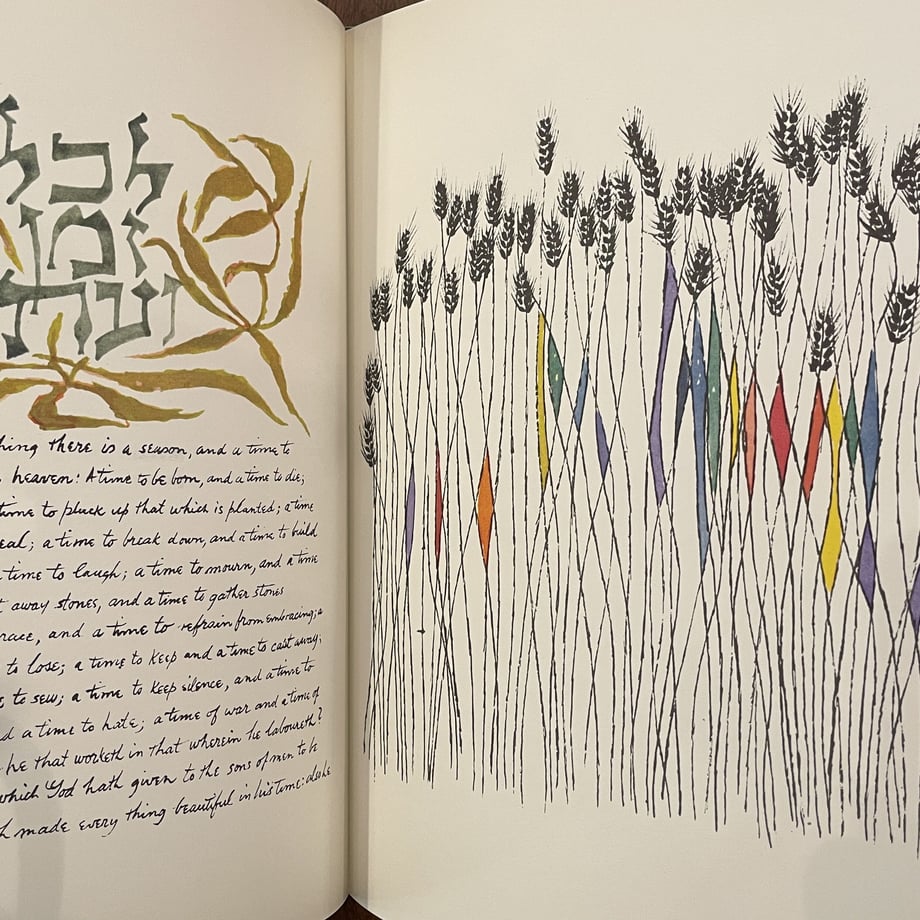 hing there is a season, and a time to
heaven: A time to be born, and a time to die;
time to pluck up that which is planted; a time
eal; a time to break down, and a time to build
time to laugh; a time to mourn, and a time
away stones, and a time to gather stones
race, and a time to refrain from embracing; a
to lose; a time to keep and a time to cast away;
to sew; a time to keep silence, and a time to
d a time to hate; a time of war and a time of
he that worketh in that wherein he laboureth?
which God hath given to the sons of men to be
h made every thing beautiful in his time: also he